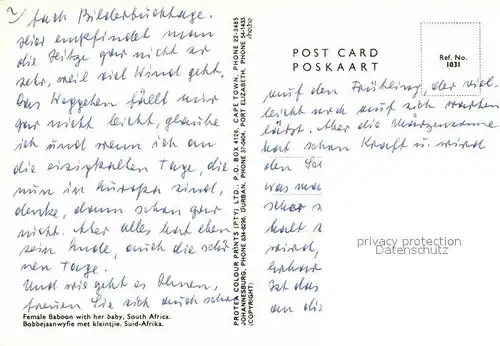 2/ fach Bilderbuchtage.
Hier empfindet man
die Hitze gar nicht so
sehr, weil viel Wind geht.
Das Weggehen fällt mir
gar nicht leicht, glaube
ich und wenn ich an
die eisigkalten Tage, die
nun in Europa sind,
denke, dann schon gar
nicht. Aber alles hat eben
sein Ende, auch die schö-
nen Tage.
Und wie geht es Ihnen,
freuen Sie sich auch schon
Female Baboon with her baby, South Africa.
Bobbejaanwyfie met kleintjie. Suid-Afrika.
PROTEA COLOUR PRINTS (PTY) LTD., P.O. BOX 4126, CAPE TOWN, PHONE 22-3485
JOHANNESBURG, PHONE 834-6296. DURBAN, PHONE 37-0604. PORT ELIZABETH, PHONE 54-1433
(COPYRIGHT)
POST CARD
POSKAART
Ref. No.
1031
auf den Frühling, der viel-
leicht noch auf sich warten
lässt. Aber die Märzsonne
hat schon Kraft u. wird
den
was
schon
halt
wird,
ist das
an
privacy protection
for Members